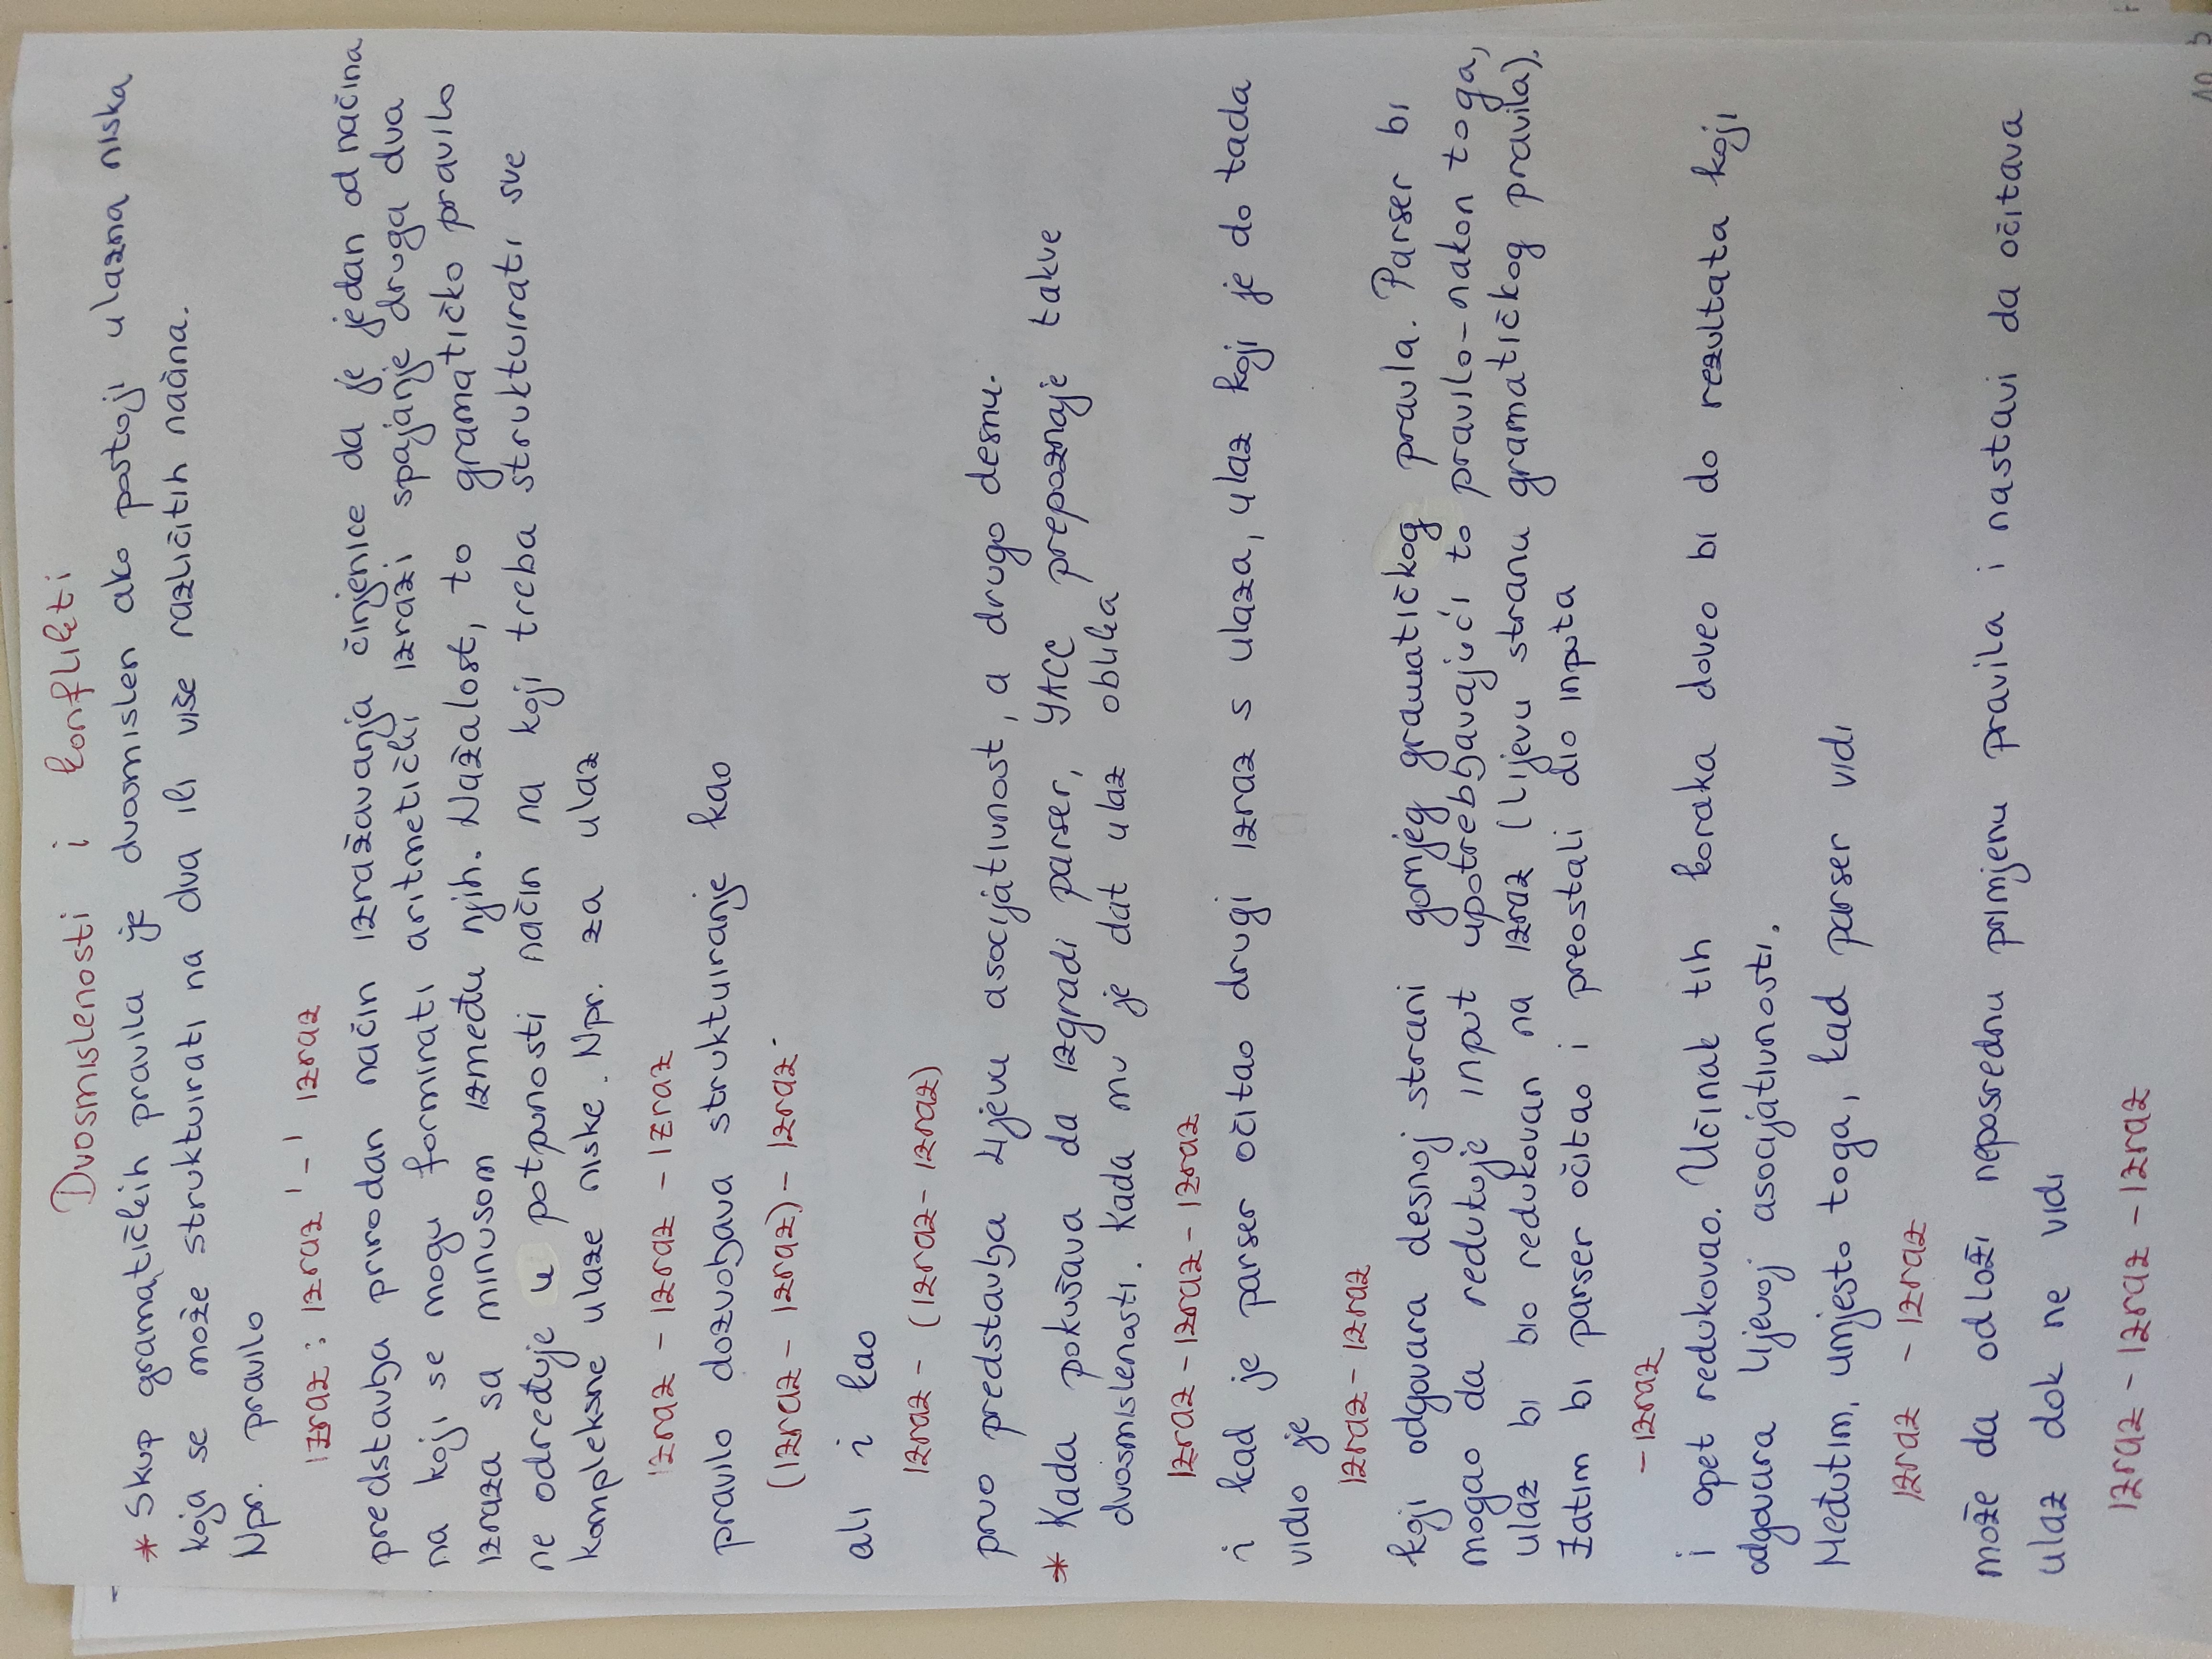 Dvosmislenosti i konflikti
* Skup gramatičkih pravila je dvosmislen ako postoji ulazna niska
koja se može strukturirati na dva ili više različitih načina.
Npr. pravilo
izraz : izraz '-' izraz
predstavlja prirodan način izražavanja činjenice da je jedan od načina
na koji se mogu formirati aritmetički izrazi spajanje druga dva
izraza sa minusom između njih. Nažalost, to gramatičko pravilo
ne određuje u potpunosti način na koji treba strukturirati sve
kompleksne ulaze niske. Npr. za ulaz
izraz - izraz - izraz
pravilo dozvoljava strukturiranje kao
(izraz - izraz) - izraz.
ali i kao
izraz - (izraz - izraz)
prvo predstavlja lijevu asocijativnost, a drugo desnu.
* Kada pokušava da izgradi parser, YACC prepoznaje takve
dvosmislenosti. Kada mu je dat ulaz oblika
izraz - izraz - izraz
i kad je parser očitao drugi izraz s ulaza, ulaz koji je do tada
vidio je
izraz - izraz
koji odgovara desnoj strani gornjeg gramatičkog pravila. Parser bi
mogao da redukuje input upotrebljavajući to pravilo - nakon toga,
ulaz bi bio redukovan na izraz (lijevu stranu gramatičkog pravila).
Zatim bi parser očitao i preostali dio inputa
- izraz
i opet redukovao. Učinak tih koraka doveo bi do rezultata koji
odgovara lijevoj asocijativnosti.
Međutim, umjesto toga, kad parser vidi
izraz - izraz
može da odloži neposrednu primjenu pravila i nastavi da očitava
ulaz dok ne vidi
izraz - izraz - izraz